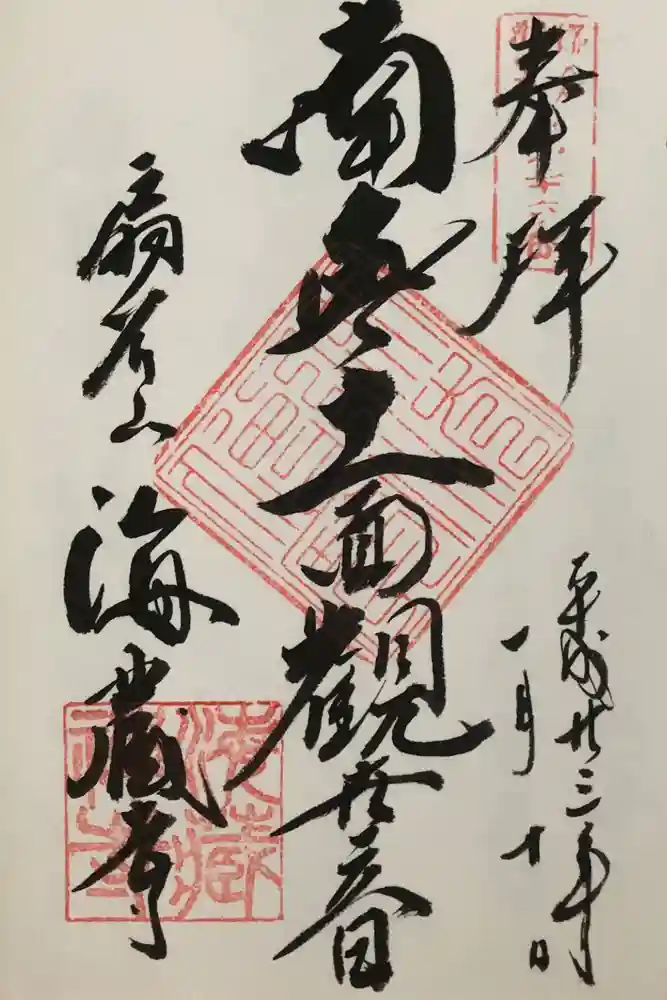 奉拜
平成廿三年
一月十日
南無十一面觀世音
扇谷山
海蔵寺
海藏
禅寺